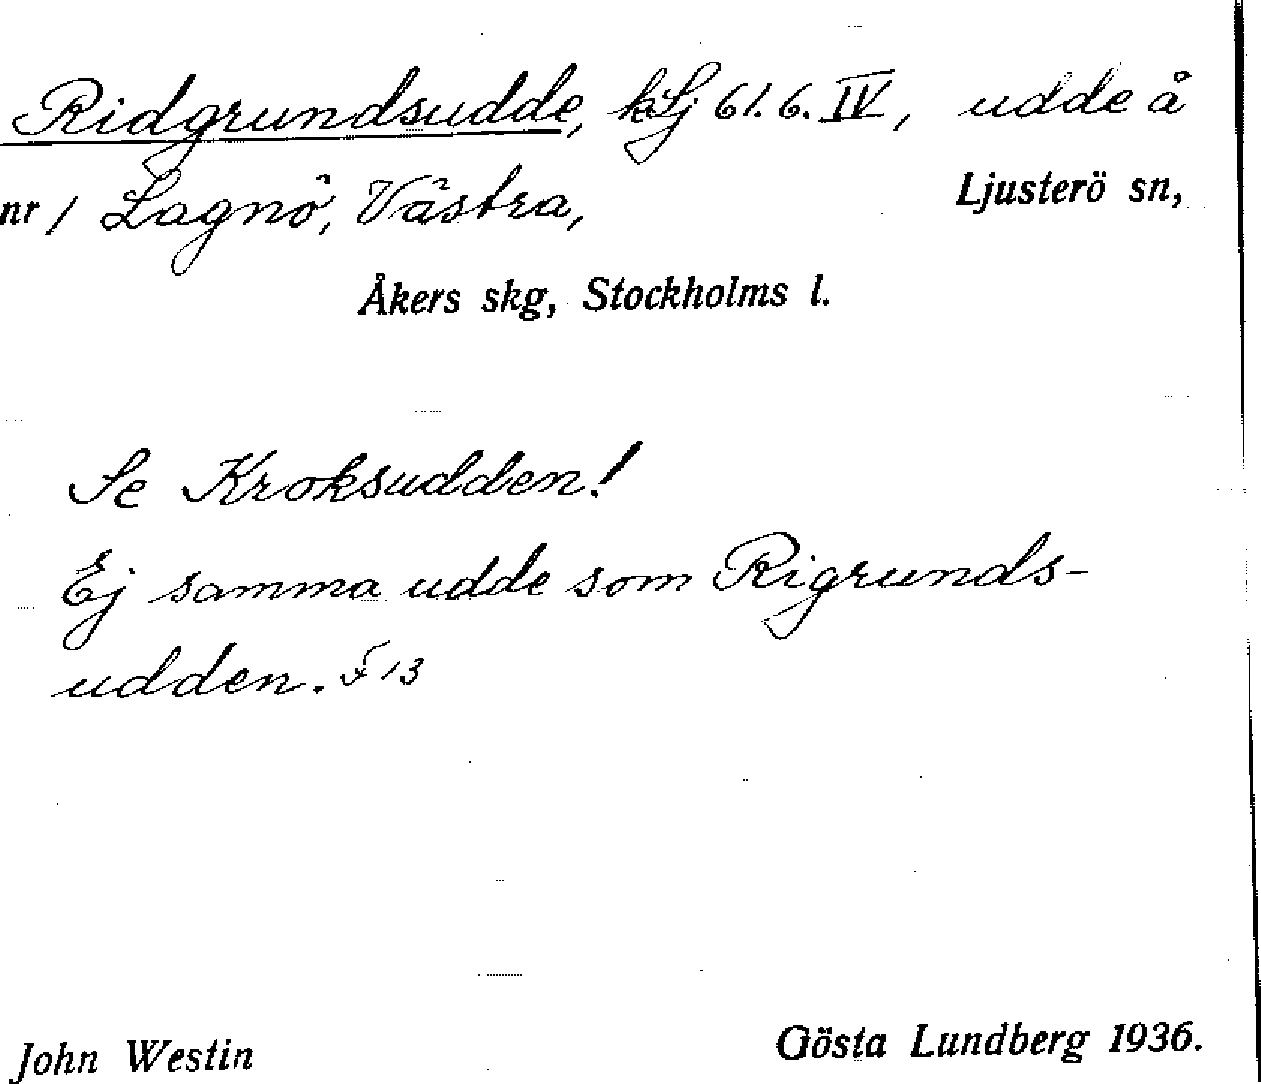 Ridgrundsudde, kLj 61.6.IV, udde å
nr 1 Lagnö, Västra, Ljusterö sn,
Åkers skg, Stockholms l.
Se Kroksudden!
Ej samma udde som Rigrunds-
udden. F 13
John Westin Gösta Lundberg 1936.